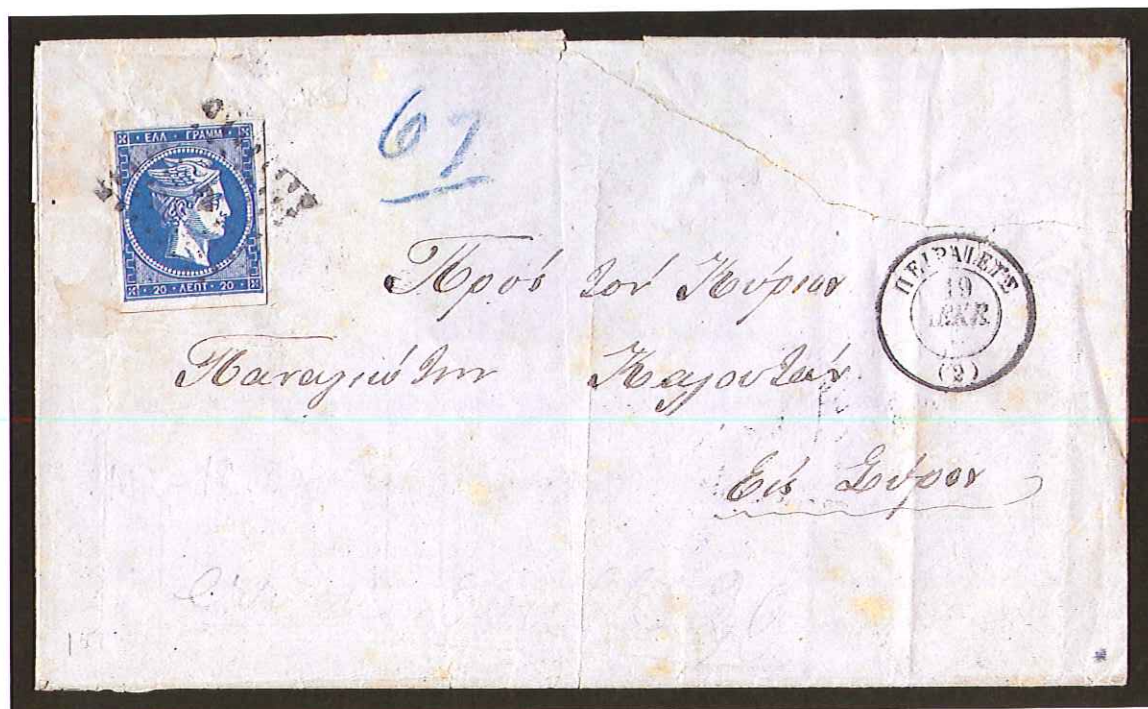 ΕΛΛ · ΓΡΑΜΜ
20 · ΛΕΠΤ · 20
67
Πρὸς τὸν Κύριον
Παναγιώτην
Εἰς Σύρον
ΠΕΙΡΑΙΕΥΣ
19
ΔΕΚΕ.
(2)